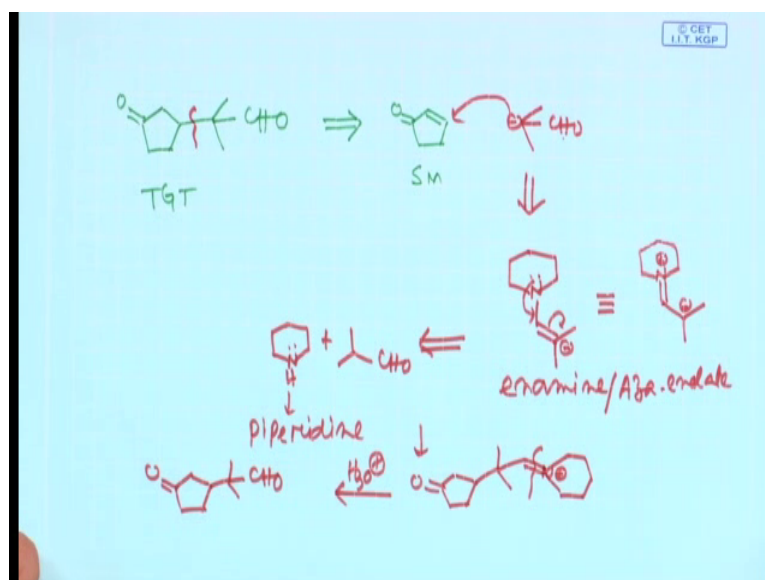 © CET
I.I.T. KGP
O CHO ⇒ O ⊖ CHO
TGT SM
⇓
N ≡ ⊕
⊖ ⊖
N H + CHO ⇐
enamine/Aza-enolate
piperidine ↓
O CHO H3O⊕ ← O N⊕